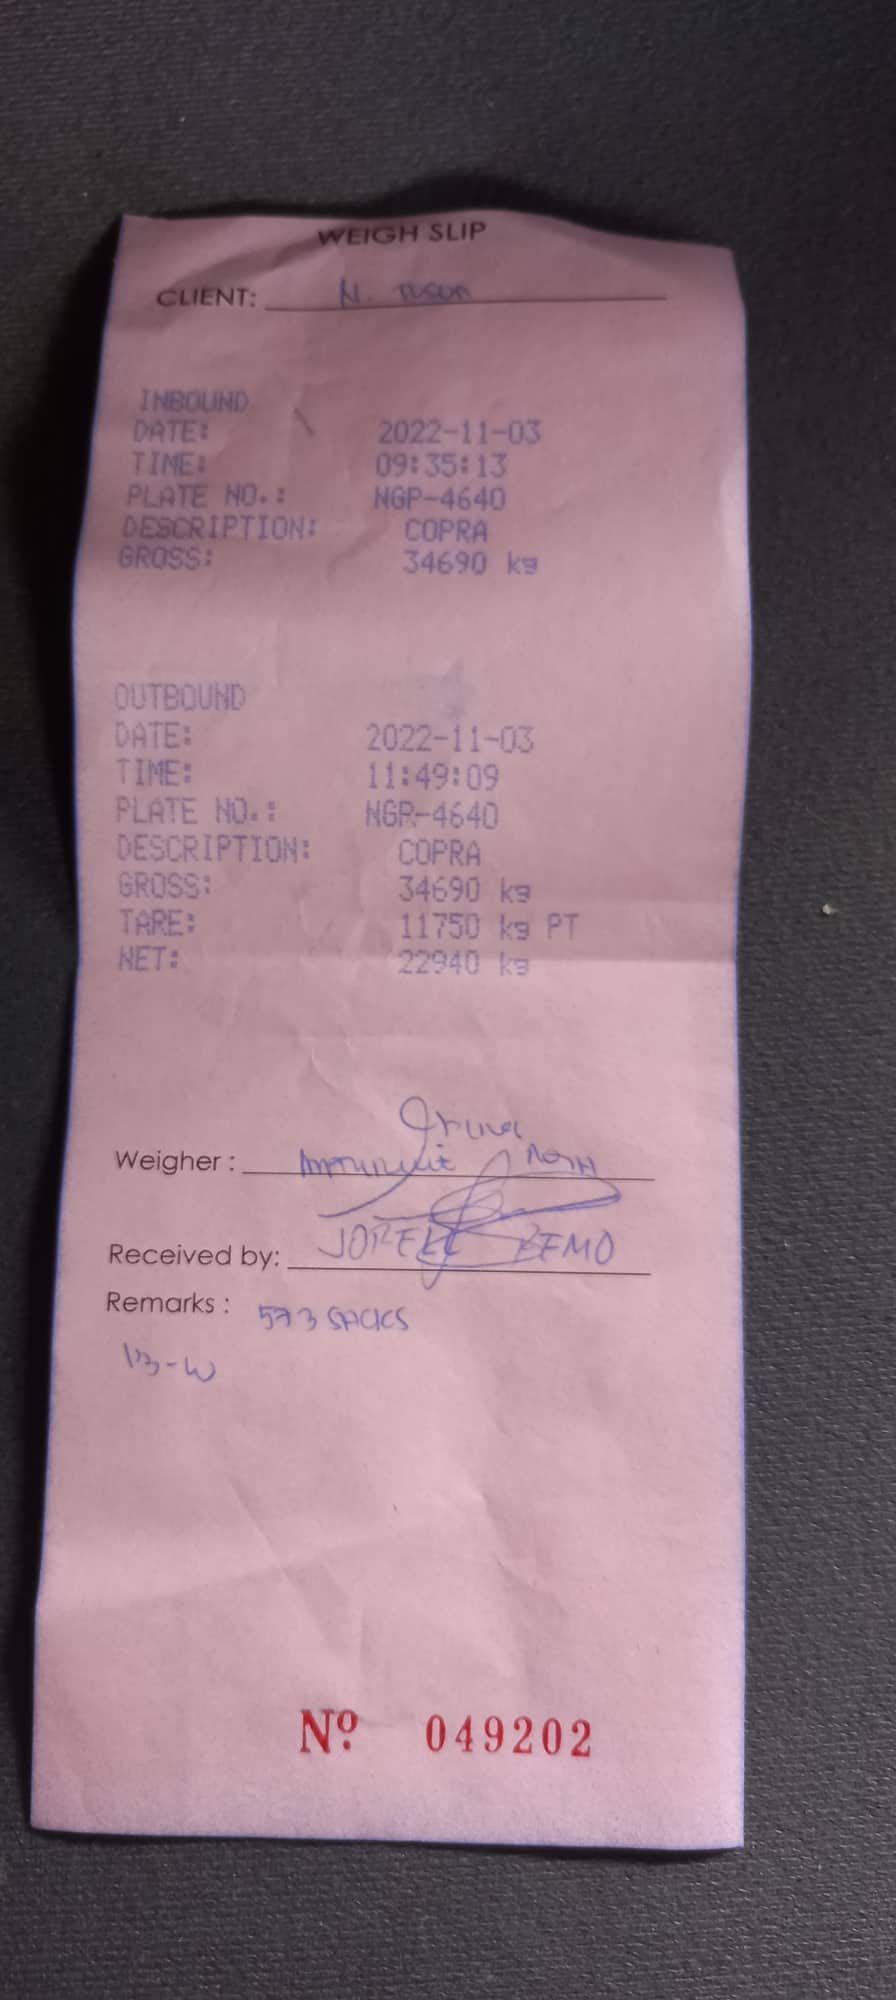 WEIGH SLIP
CLIENT: N. Tuson
INBOUND
DATE: 2022-11-03
TIME: 09:35:13
PLATE NO.: NGP-4640
DESCRIPTION: COPRA
GROSS: 34690 kg
OUTBOUND
DATE: 2022-11-03
TIME: 11:49:09
PLATE NO.: NGP-4640
DESCRIPTION: COPRA
GROSS: 34690 kg
TARE: 11750 kg PT
NET: 22940 kg
Weigher :
Received by: BEMO
Remarks : 573 SACKS
13-W
Nº 049202